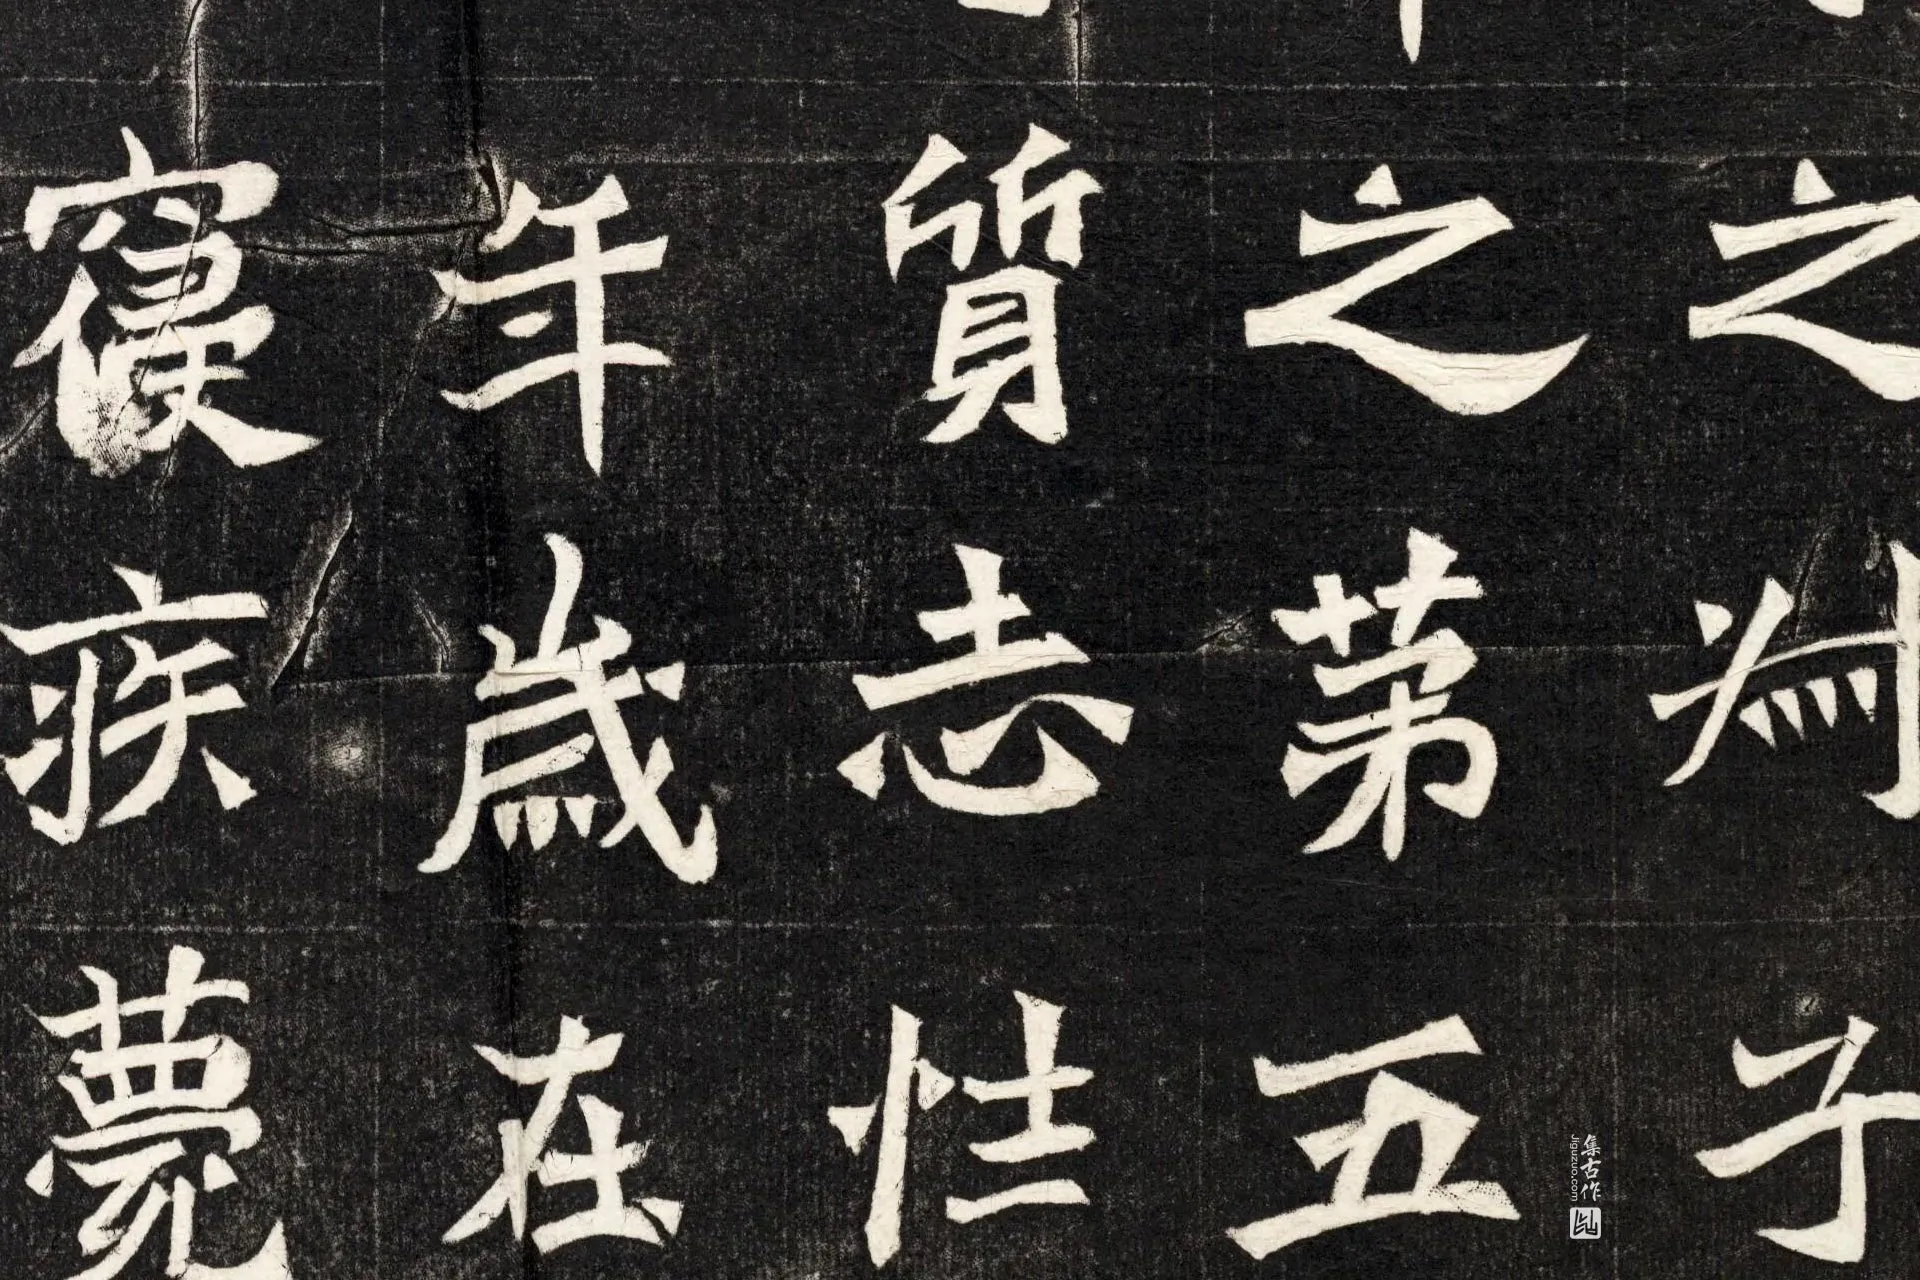 之為子
之苐五
質志性
年歲在
寢疾薨
集古作
Jiguzuo.com